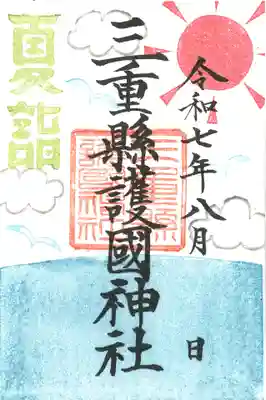 令和七年八月 日
三重縣護國神社
夏詣